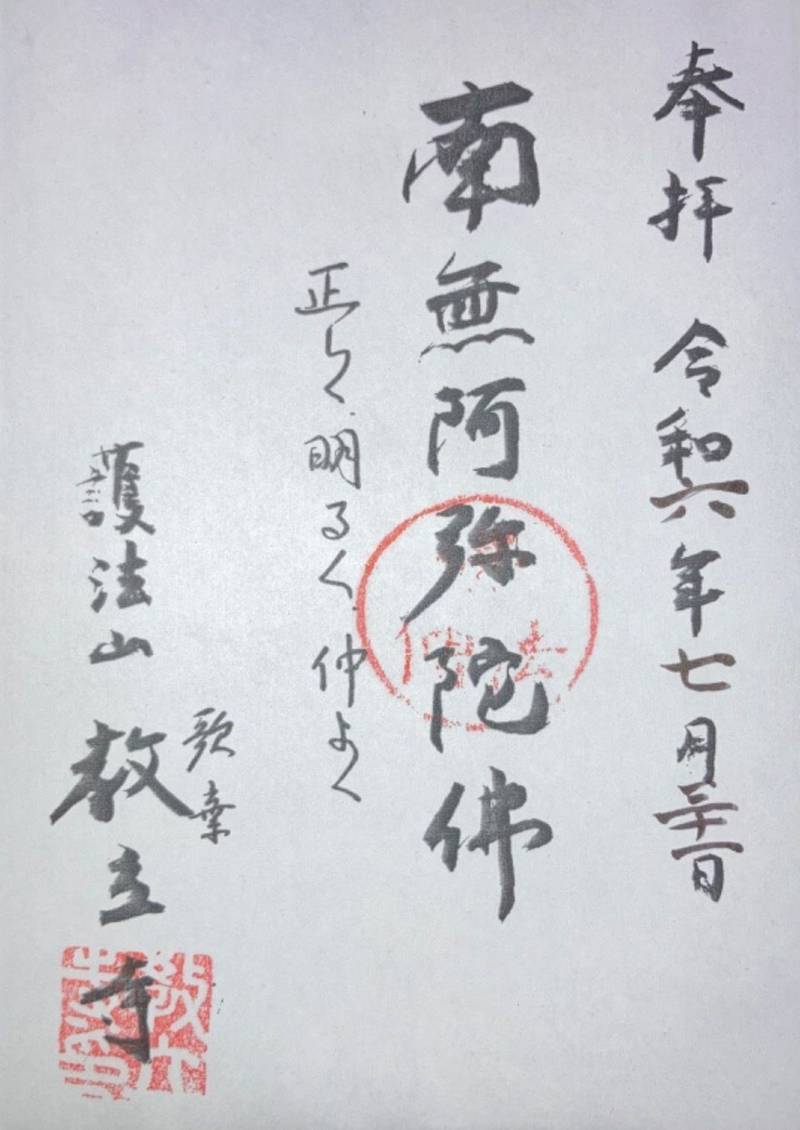 奉拝 令和六年七月二十一日
南無阿弥陀佛
正しく 明るく 仲よく
歌棄
護法山 教立寺